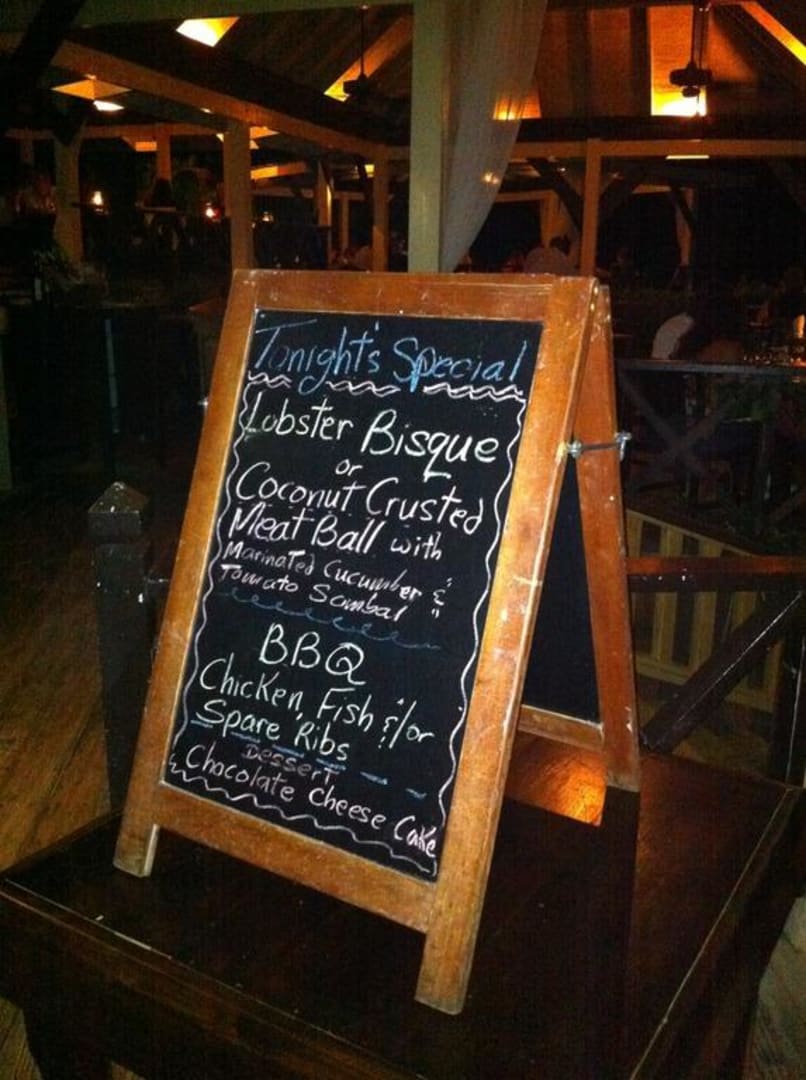 Tonight's Special
Lobster Bisque
or
Coconut Crusted
Meat Ball with
Marinated Cucumber &
Tomato Sambal
BBQ
Chicken Fish &/or
Spare Ribs
Dessert
Chocolate Cheese Cake